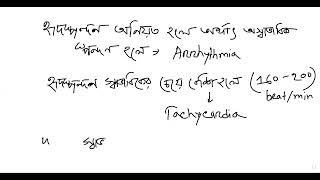 হৃদস্পন্দন অনিয়ত হলে অর্থাৎ অস্বাভাবিক
স্পন্দন হলে → Arrhythmia
হৃদস্পন্দন স্বাভাবিকের চেয়ে বেশি হলে (160-200)
beat/min
↓
Tachycardia
"